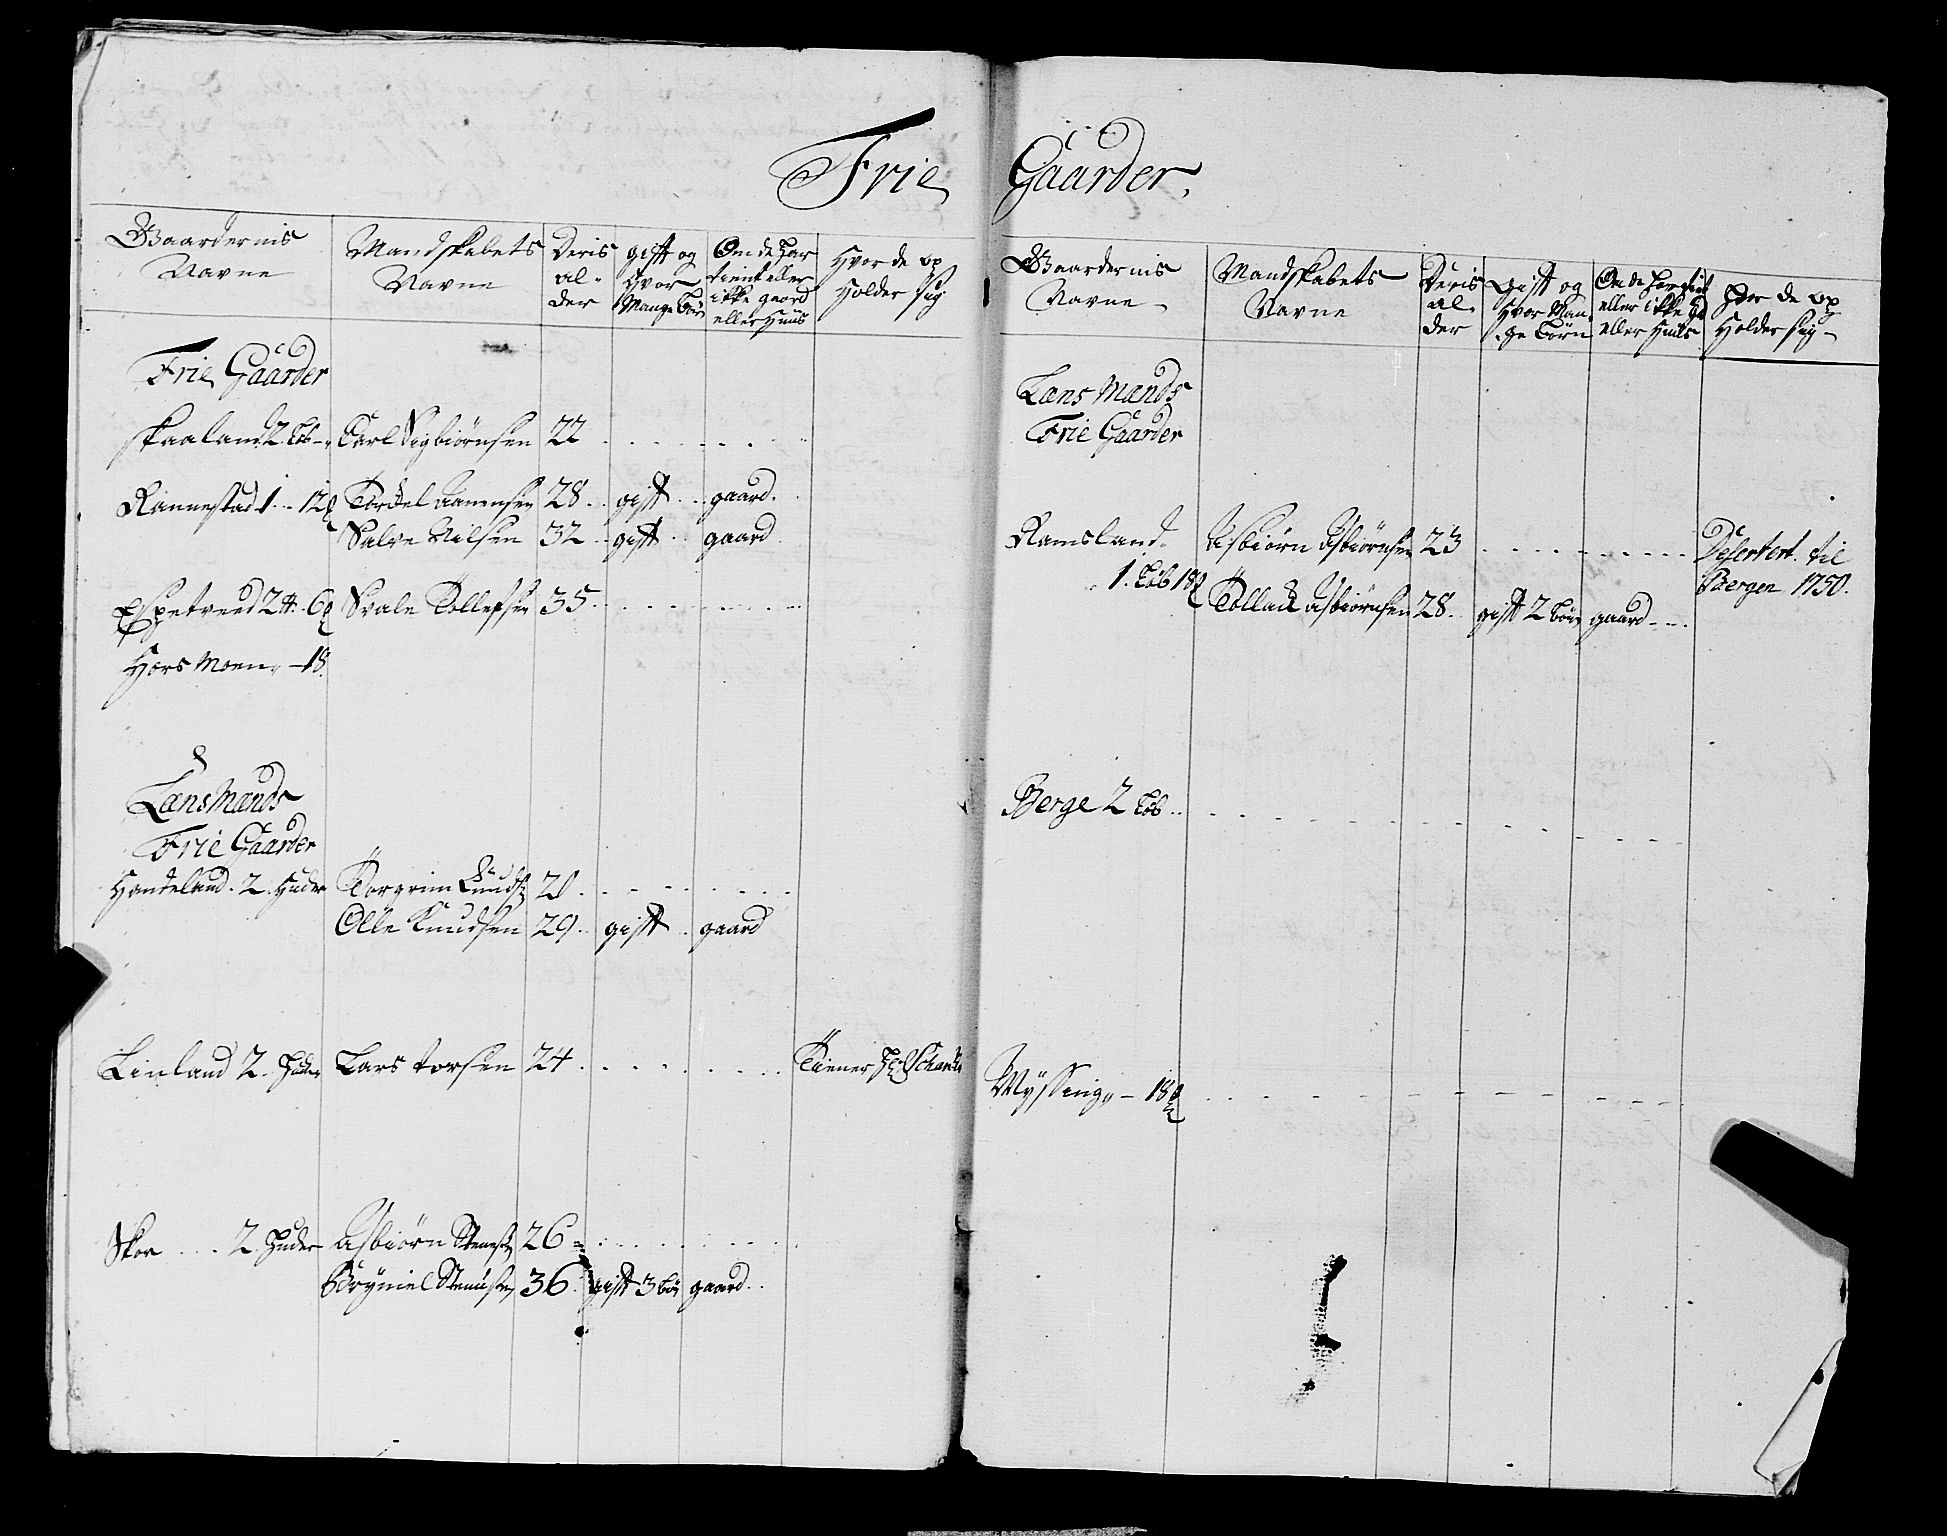 Frie Gaarder.
Gaardernis Navne
Mandskabets Navne
Deris alder
gift og Hvor Mange Børn
Om de har tient eller ikke gaard eller Huus
Hvor de op Holder sig
Frie Gaarder
Skaaland 2 Løb Carl Sigbiørnsen 22
Rannestad 1 12 Torkel Aanensen 28 gift gaard
Salve Nilsen 32 gift gaard
Espetveed 2 6 Svale Tollefsen 35
Hörsmoen 18
Lænsmands
Frie Gaarder
Handeland 2 Huder Torgrim Knuds 20
Olle Knudsen 29 gift gaard
Linland 2 Huder Lars Torsen 24 Tiener
Skor 2 Huder Asbiørn Stenes 26
Bryniel Stenusen 36 gift 3 bør gaard
Gaardernis Navne
Mandskabets Navne
Deris alder
gift og Hvor Mange Børn
Om de har tient eller ikke eller Huus
Hvor de op Holder sig
Lænsmands
Frie Gaarder
Ramsland Asbiørn Asbiørnsen 23 Desertert til
1 Løb 18 Tollack Asbiørnsen 28 gift 2 bør gaard Bergen 1750
Berge 2 Løb
Myssing 18